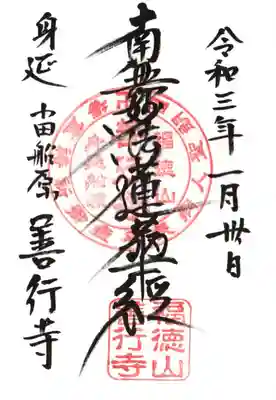 令和三年一月卅日
南無妙法蓮華経
身延 小田船原 善行寺
福徳山
善行寺